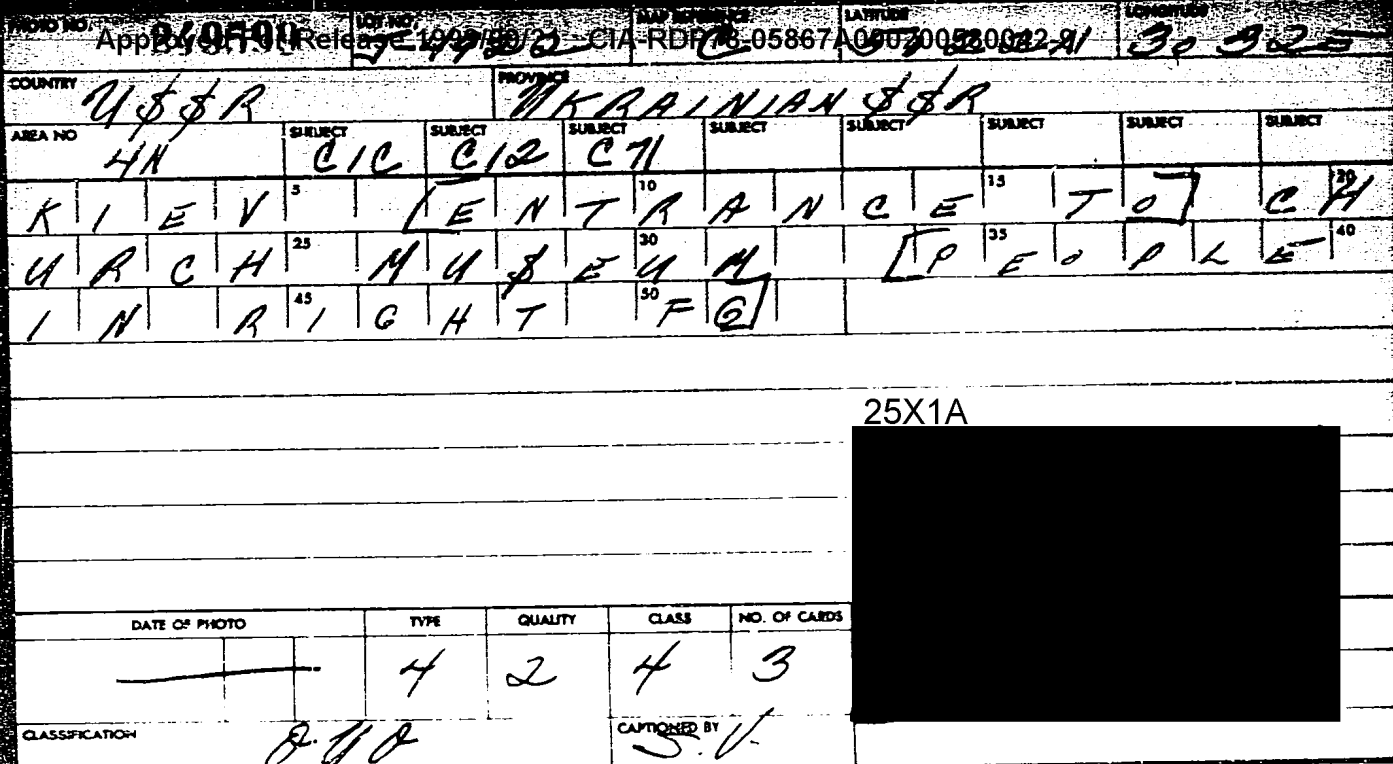 PHOTO NO. LOT NO. MAP REFERENCE LATITUDE LONGITUDE
Approved For Release CIA-RDP
COUNTRY U$$R PROVINCE UKRAINIAN $$R
AREA NO 4N SUBJECT C1C SUBJECT C12 SUBJECT C71 SUBJECT SUBJECT SUBJECT SUBJECT SUBJECT
KIEV 5 [EN 10 TRANCE 15 TO] C 20 H
URCH 25 MU$E 30 UM [P 35 EOPLE 40
IN R 45 IGHT 50 FG]
25X1A
DATE OF PHOTO TYPE QUALITY CLASS NO. OF CARDS
4 2 4 3
CLASSIFICATION CAPTIONED BY S.V.